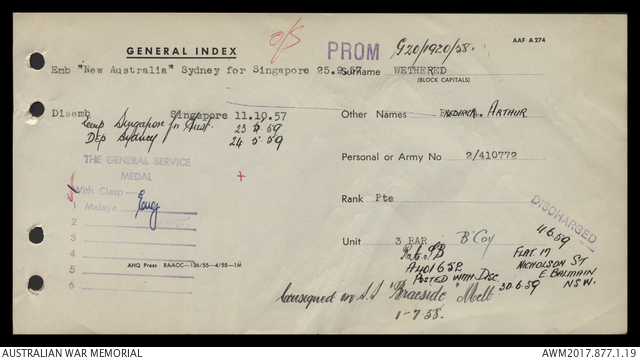 O/S
AAF A274
GENERAL INDEX
PROM G20/1920/58.
Emb "New Australia" Sydney for Singapore 25.9.57
Surname WETHERED
(BLOCK CAPITALS)
Disemb Singapore 11.10.57
Other Names FREDERICK. ARTHUR
Emp Singapore for Aust. 23 5 59
Dep Sydney 24 5 59
Personal or Army No 2/410772
THE GENERAL SERVICE
MEDAL
With Clasp
1 Malaya
2
3
4
5
6
Rank Pte
DISCHARGED
11 6 59
Unit 3 RAR B' Coy
A401652
POSTED WITH DEC
30.6.59
FLAT. 17
NICHOLSON ST
E BALMAIN
N.S.W.
AHQ Press RAAOC—136/55—4/55—1M
Consigned on S.S "Braeside" Melb
1-7-58.
AUSTRALIAN WAR MEMORIAL
AWM2017.877.1.19